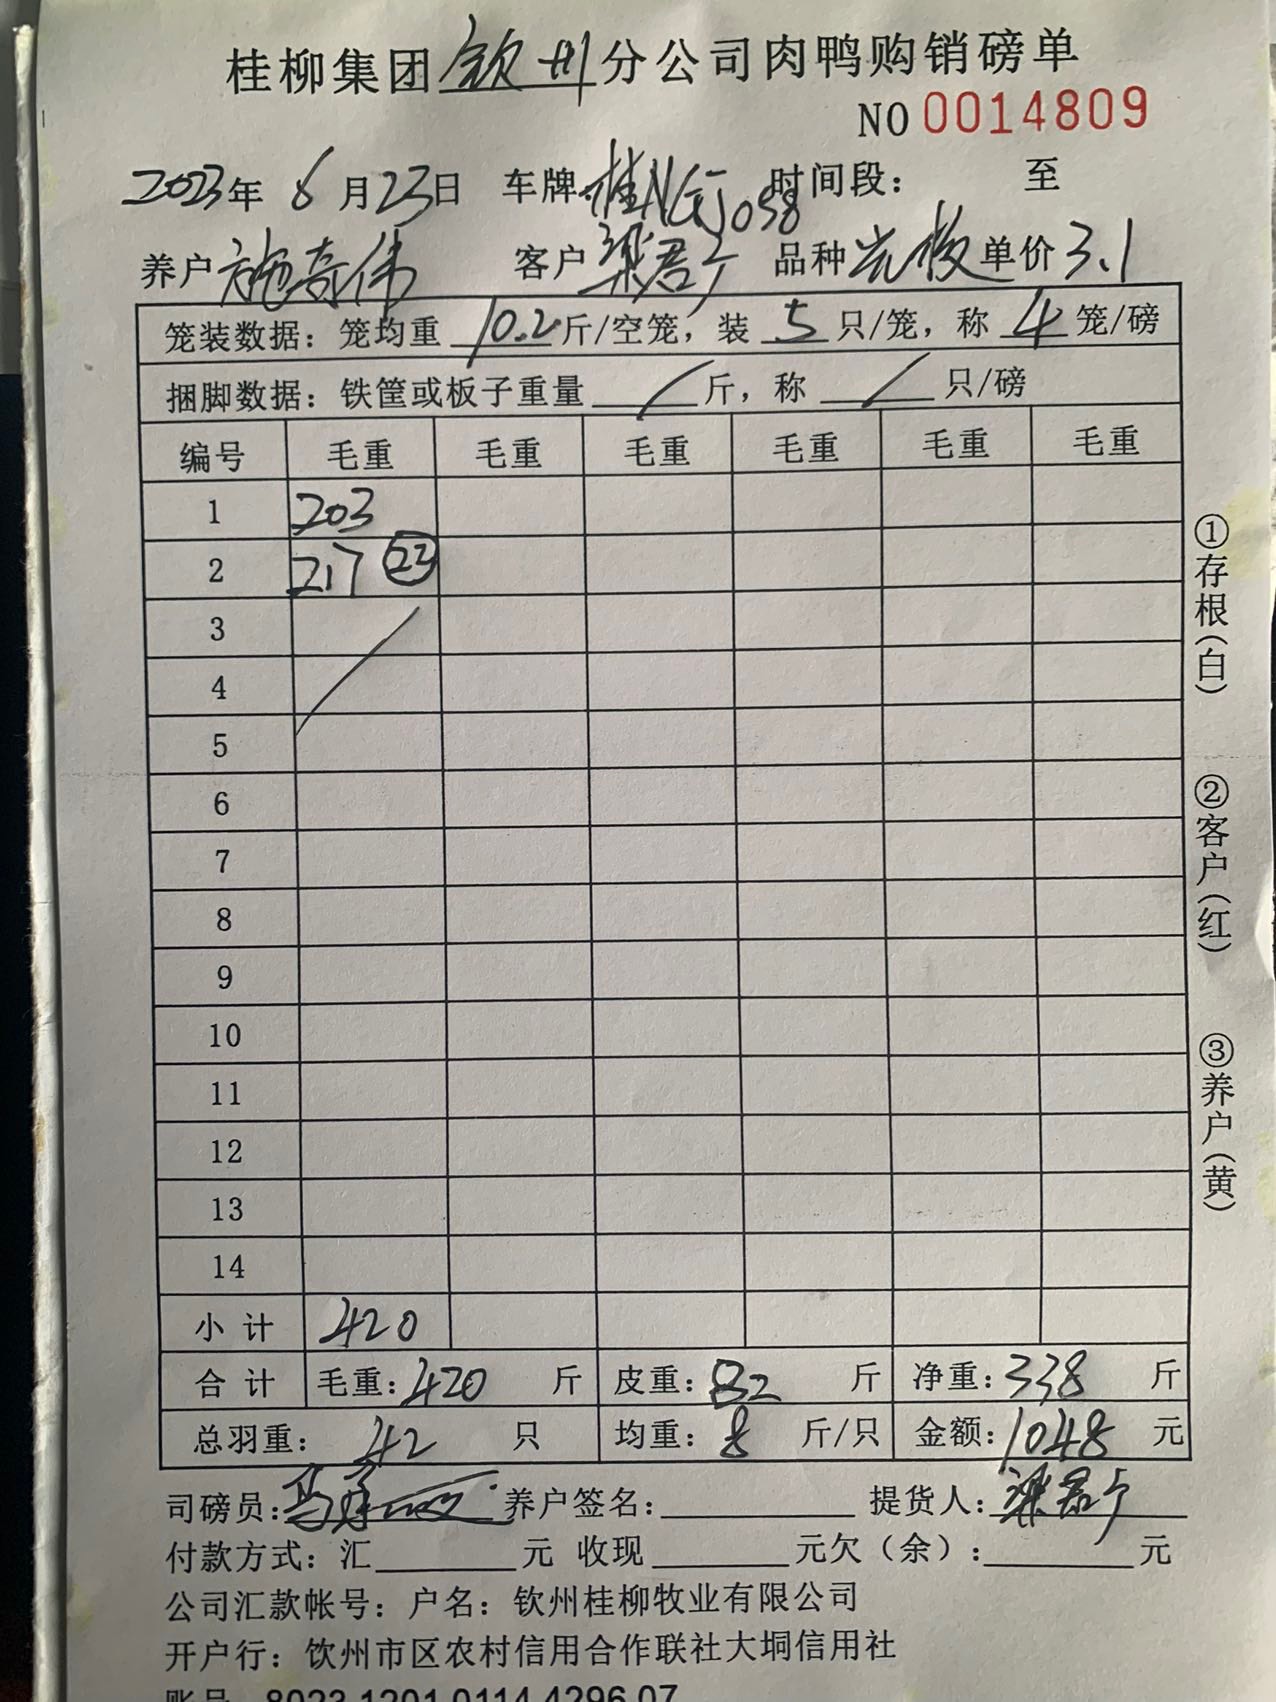 桂柳集团 钦州 分公司肉鸭购销磅单
NO 0014809
2023年 6月23日 车牌 桂NGJ058 时间段： 至
养户 施奇伟 客户 梁君 品种 单价 3.1
笼装数据：笼均重 10.2 斤/空笼，装 5 只/笼，称 4 笼/磅
捆脚数据：铁筐或板子重量 / 斤，称 / 只/磅
编号 毛重 毛重 毛重 毛重 毛重 毛重
1 203
2 217 22
3
4
5
6
7
8
9
10
11
12
13
14
小计 420
合计 毛重：420 斤 皮重：82 斤 净重：338 斤
总羽重： 42 只 均重：8 斤/只 金额：1048 元
司磅员： 养户签名： 提货人：梁君
付款方式：汇 元 收现 元欠（余）： 元
公司汇款帐号：户名：钦州桂柳牧业有限公司
开户行：饮州市区农村信用合作联社大垌信用社
账号 8023 1201 0114 4296 07
①存根（白）
②客户（红）
③养户（黄）